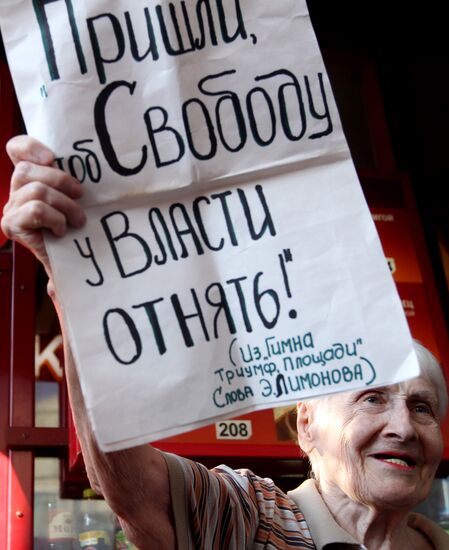 "Пришли,
чтоб Свободу
у Власти
отнять!"
(Из „Гимна
Триумф. Площади"
Слова Э. Лимонова)
208